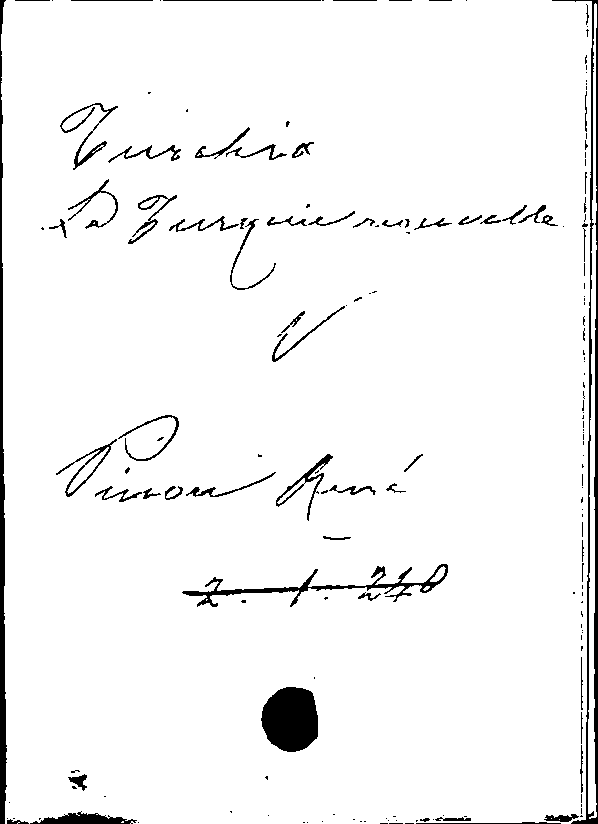 Turchia
La Turquie nouvelle
V
Pinon René
2. 1. 240